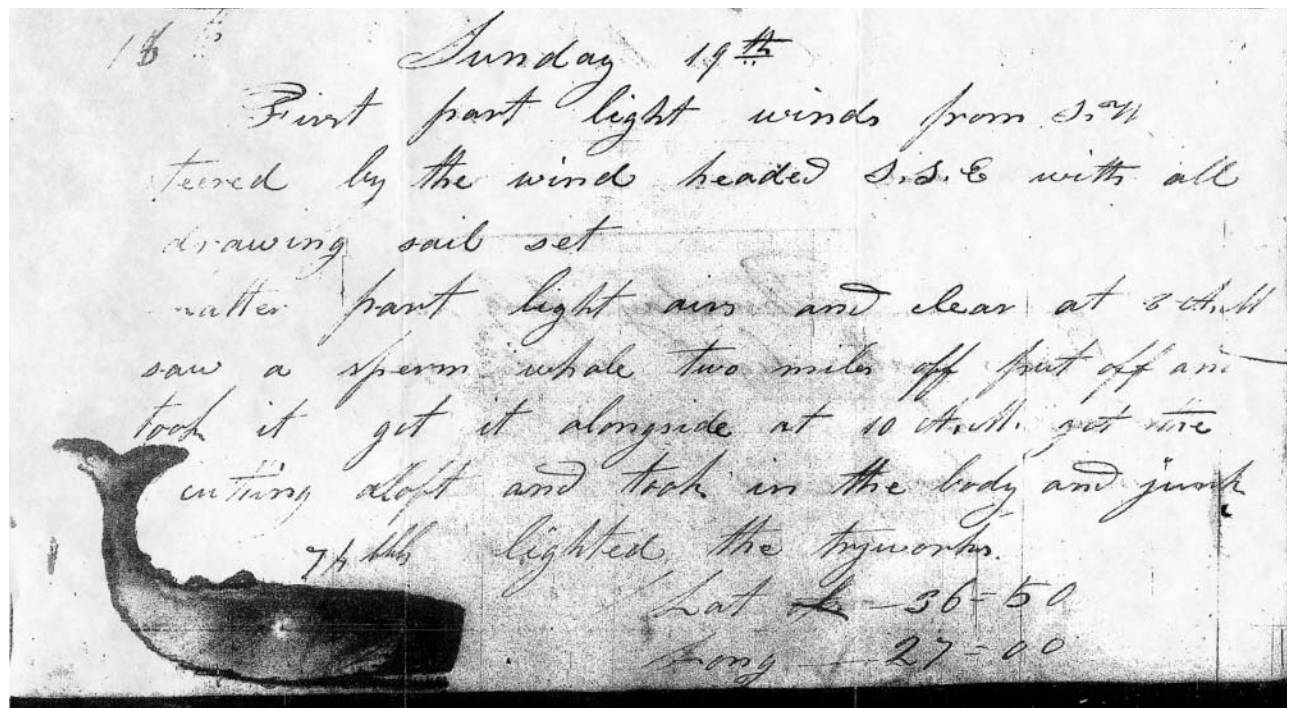 18
Sunday 19th
First part light winds from S.W
teered by the wind headed S.S.E with all
drawing sail set
latter part light airs and clear at 8 A.M
saw a sperm whale two miles off put off and
took it got it alongside at 10 A.M. got the
cutting aloft and took in the body and junk
lighted the tryworks.
bbls
Lat 36=50
Long 27=00